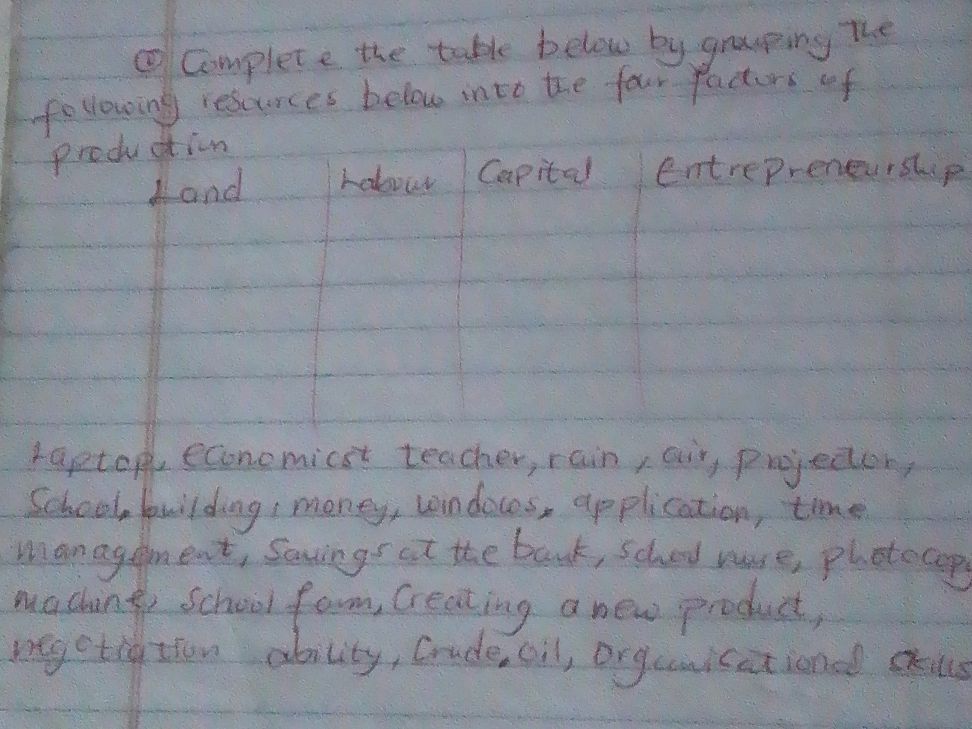 ① Complete the table below by grouping the
following resources below into the four factors of
production
Land Labour Capital Entrepreneurship
Laptop, economicst teacher, rain, air, projector,
School, building, money, windows, application, time
management, Savings at the bank, school nurse, photocopy
machine, School farm, Creating a new product,
negotiation ability, Crude, oil, Organisational skills